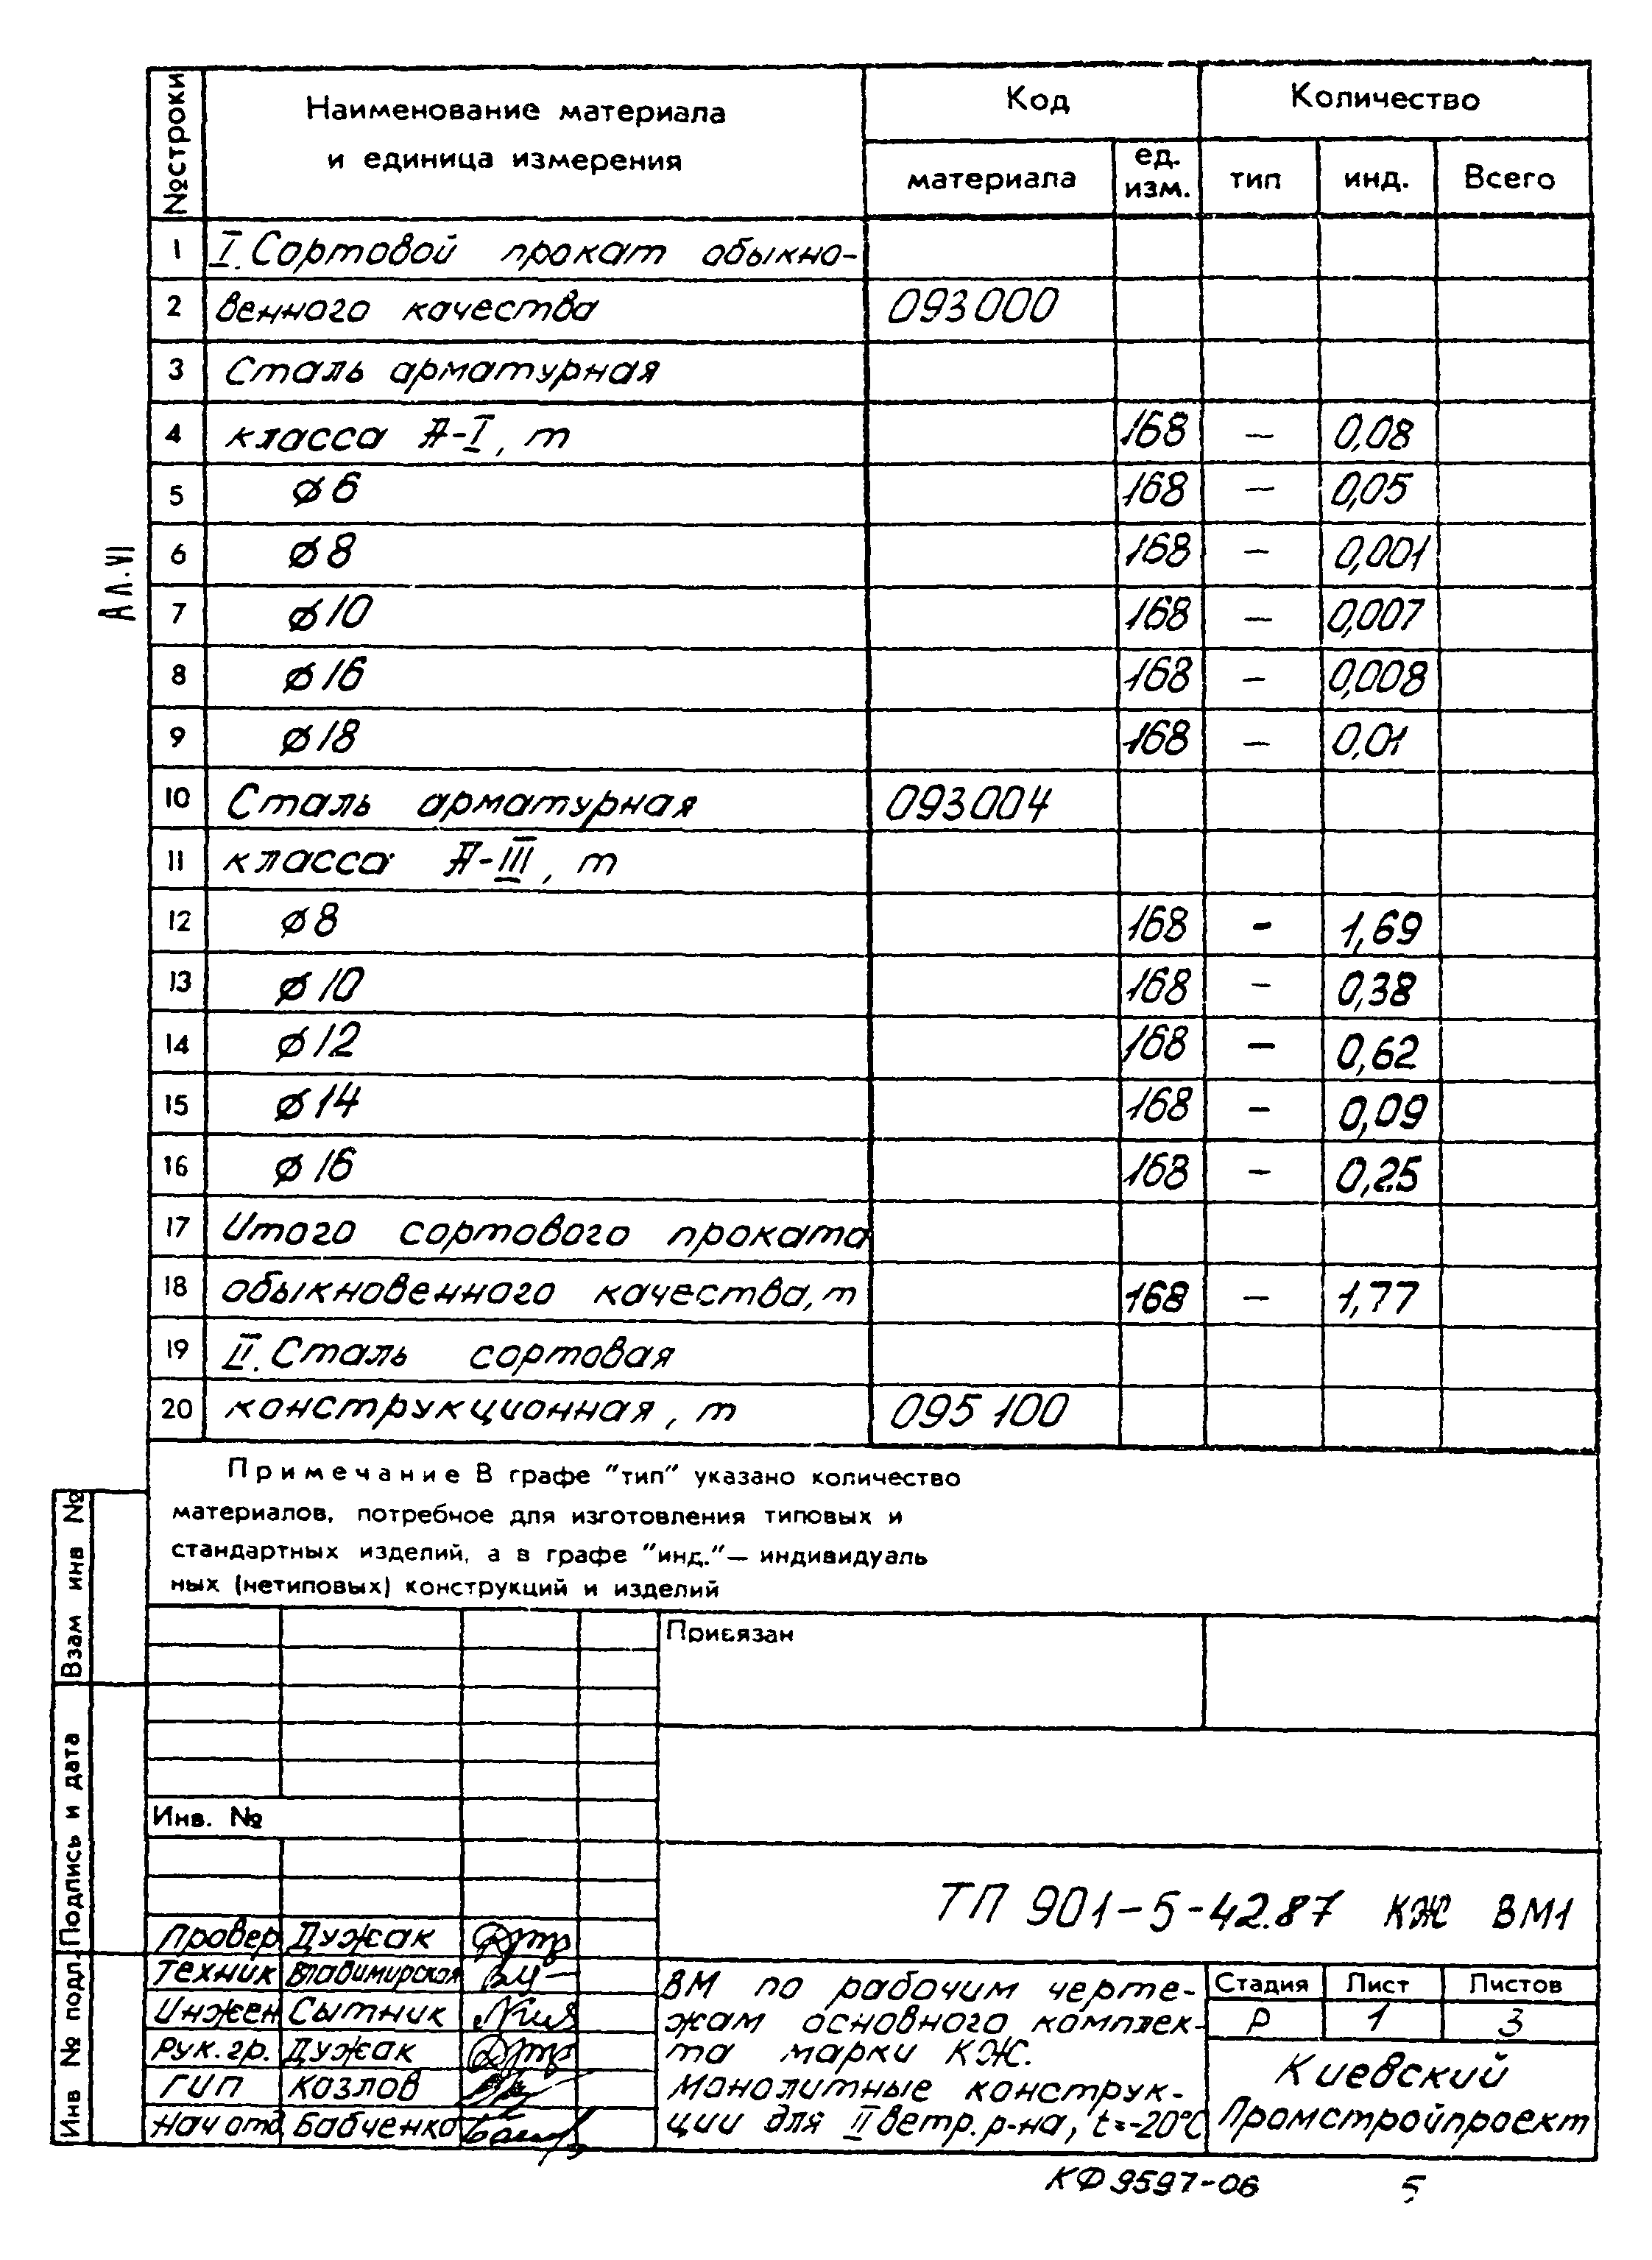 № строки
Наименование материала
и единица измерения
Код
Количество
материала
ед.
изм.
тип
инд.
Всего
1 I. Сортовой прокат обыкно-
2 венного качества 093000
3 Сталь арматурная
4 класса А-I, т 168 – 0,08
5 ⌀6 168 – 0,05
6 ⌀8 168 – 0,001
7 ⌀10 168 – 0,007
8 ⌀16 168 – 0,008
9 ⌀18 168 – 0,01
10 Сталь арматурная 093004
11 класса А-III, т
12 ⌀8 168 – 1,69
13 ⌀10 168 – 0,38
14 ⌀12 168 – 0,62
15 ⌀14 168 – 0,09
16 ⌀16 168 – 0,25
17 Итого сортового проката
18 обыкновенного качества, т 168 – 1,77
19 II. Сталь сортовая
20 конструкционная, т 095100
Ал. VI
Примечание В графе "тип" указано количество
материалов, потребное для изготовления типовых и
стандартных изделий, а в графе "инд." — индивидуаль
ных (нетиповых) конструкций и изделий
Взам инв №
Подпись и дата
Инв № подл.
Привязан
Инв. №
ТП 901-5-42.87 КЖ ВМ1
Провер Дужак
Техник Владимирская
Инжен Сытник
Рук. гр. Дужак
ГИП Козлов
Нач отд Бабченко
ВМ по рабочим черте-
жам основного комплек-
та марки КЖ.
Монолитные конструк-
ции для II ветр. р-на, t=-20°С
Стадия Лист Листов
Р 1 3
Киевский
Промстройпроект
КФ 9597-06 5